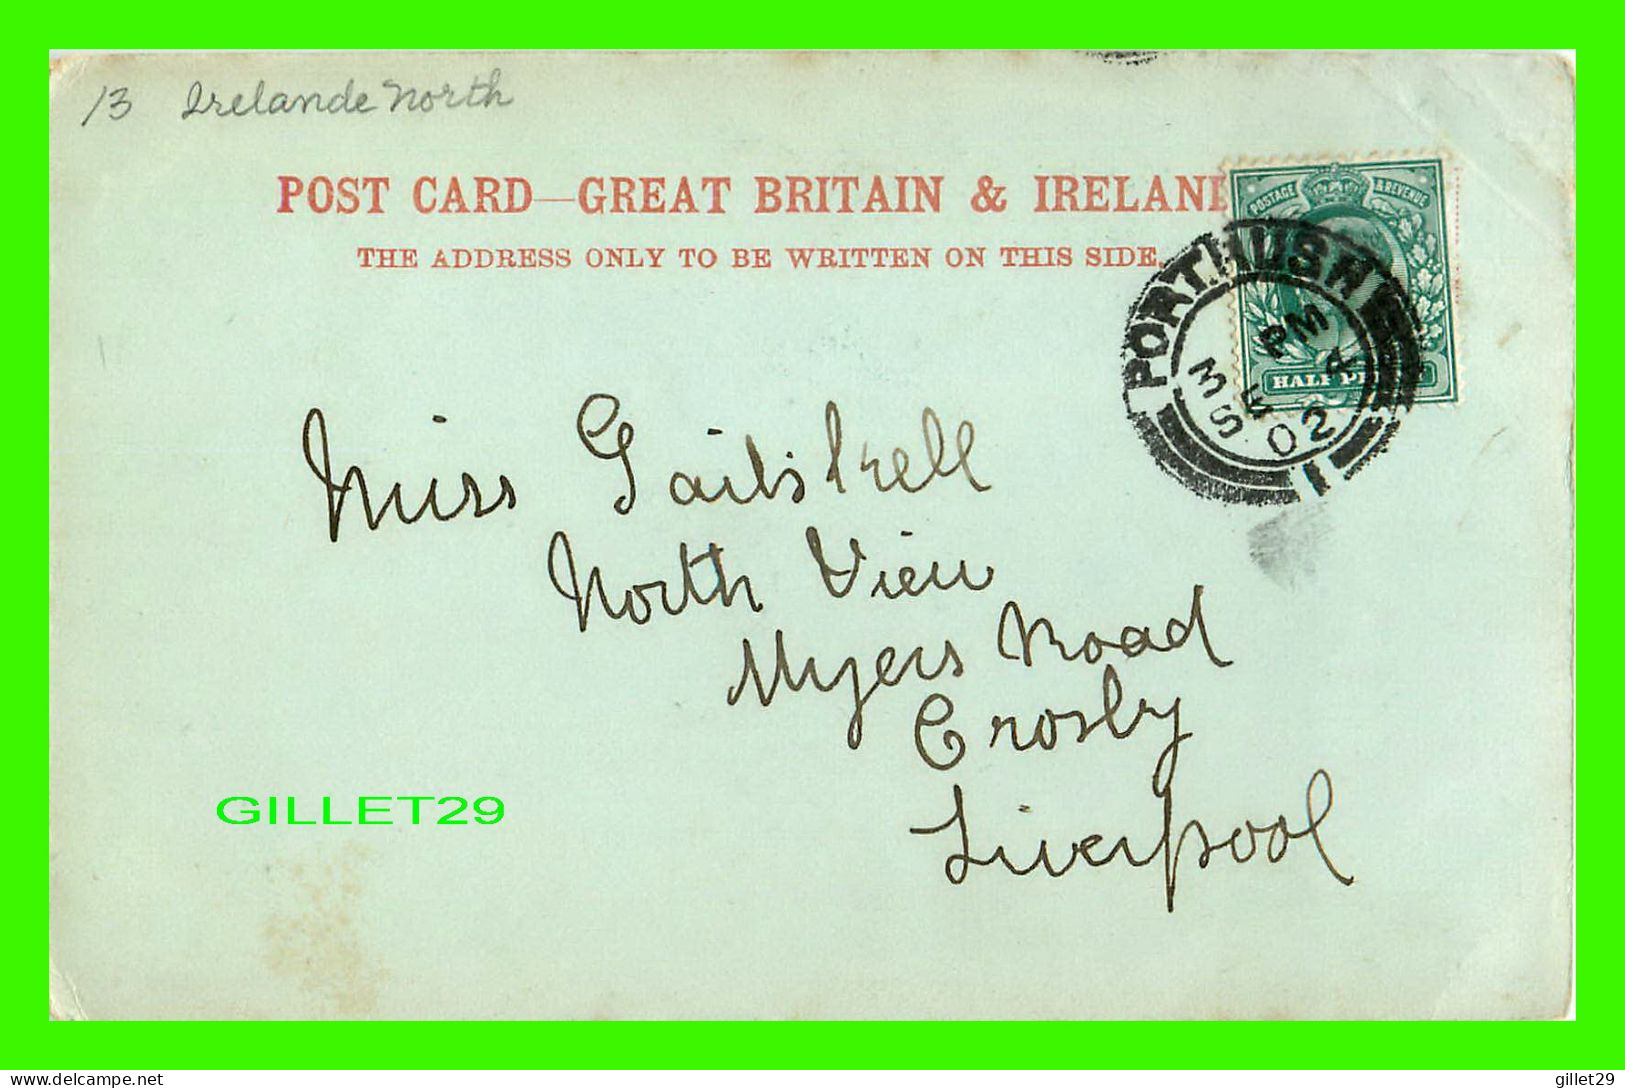 13 Irelande North
POST CARD—GREAT BRITAIN & IRELAN
THE ADDRESS ONLY TO BE WRITTEN ON THIS SIDE.
POSTAGE & REVENUE
HALF
PORTHUSH
PM
SE 4
02
1
Miss
North View
Myers Road
Crosby
Liverpool
GILLET29
delcampe.net
gillet29